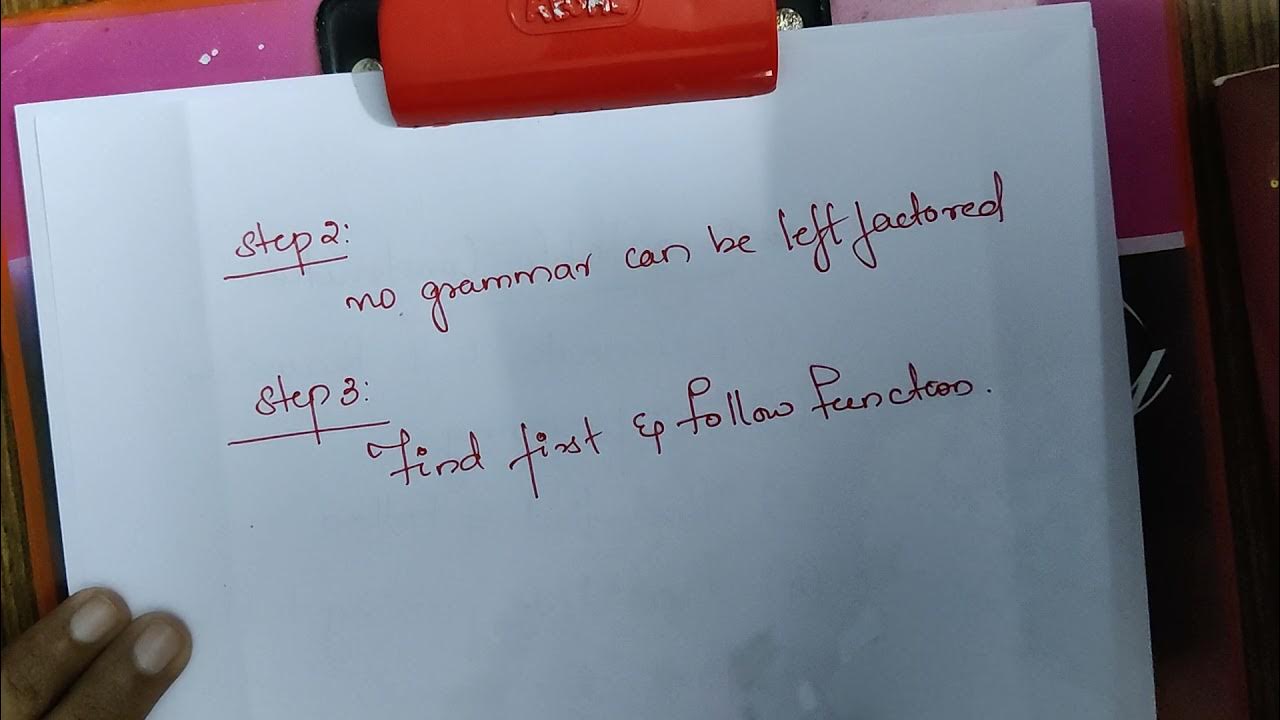 Step 2:
no grammar can be left factored
Step 3:
Find first & follow function.